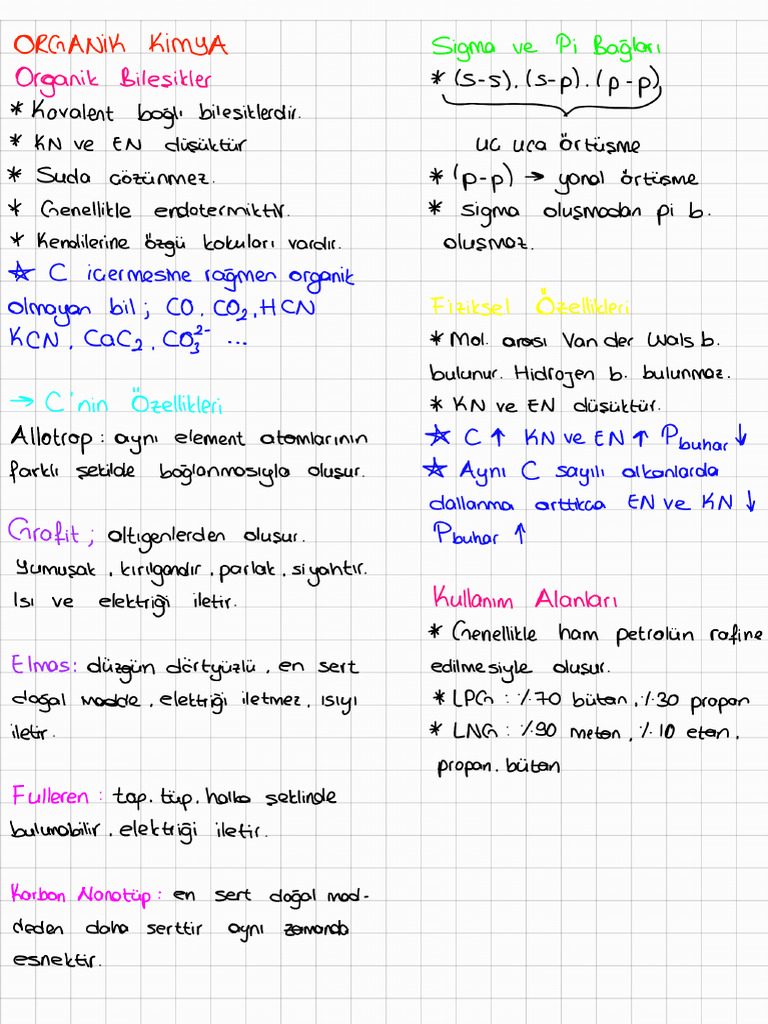 ORGANİK KİMYA
Organik Bileşikler
* Kovalent bağlı bileşiklerdir.
* KN ve EN düşüktür
* Suda çözünmez.
* Genellikle endotermiktir.
* Kendilerine özgü kokuları vardır.
☆ C içermesine rağmen organik
olmayan bil; CO, CO₂, HCN
KCN, CaC₂, CO₃²⁻ ...
→ C'nin Özellikleri
Allotrop : aynı element atomlarının
farklı şekilde bağlanmasıyla oluşur.
Grafit ; altıgenlerden oluşur.
Yumuşak, kırılgandır, parlak, siyahtır.
Isı ve elektriği iletir.
Elmas: düzgün dörtyüzlü, en sert
doğal madde, elettriği iletmez, ısıyı
iletir.
Fulleren : top, tüp, halka şeklinde
bulunabilir, elektriği iletir.
Karbon Nanotüp : en sert doğal mad-
deden daha serttir aynı zamanda
esnektir.
Sigma ve Pi Bağları
* (s-s), (s-p), (p-p)
uc uca örtüşme
* (p-p) → yanal örtüşme
* sigma oluşmadan pi b.
oluşmaz.
Fiziksel Özellikleri
* Mol. arası Van der Wals b.
bulunur. Hidrojen b. bulunmaz.
* KN ve EN düşüktür.
☆ C ↑ KN ve EN ↑ Pbuhar ↓
☆ Aynı C sayılı alkanlarda
dallanma arttıkca EN ve KN ↓
Pbuhar ↑
Kullanım Alanları
* Genellikle ham petrolün rafine
edilmesiyle oluşur.
* LPG : %70 bütan, %30 propan
* LNG : %90 metan, %10 etan,
propan, bütan